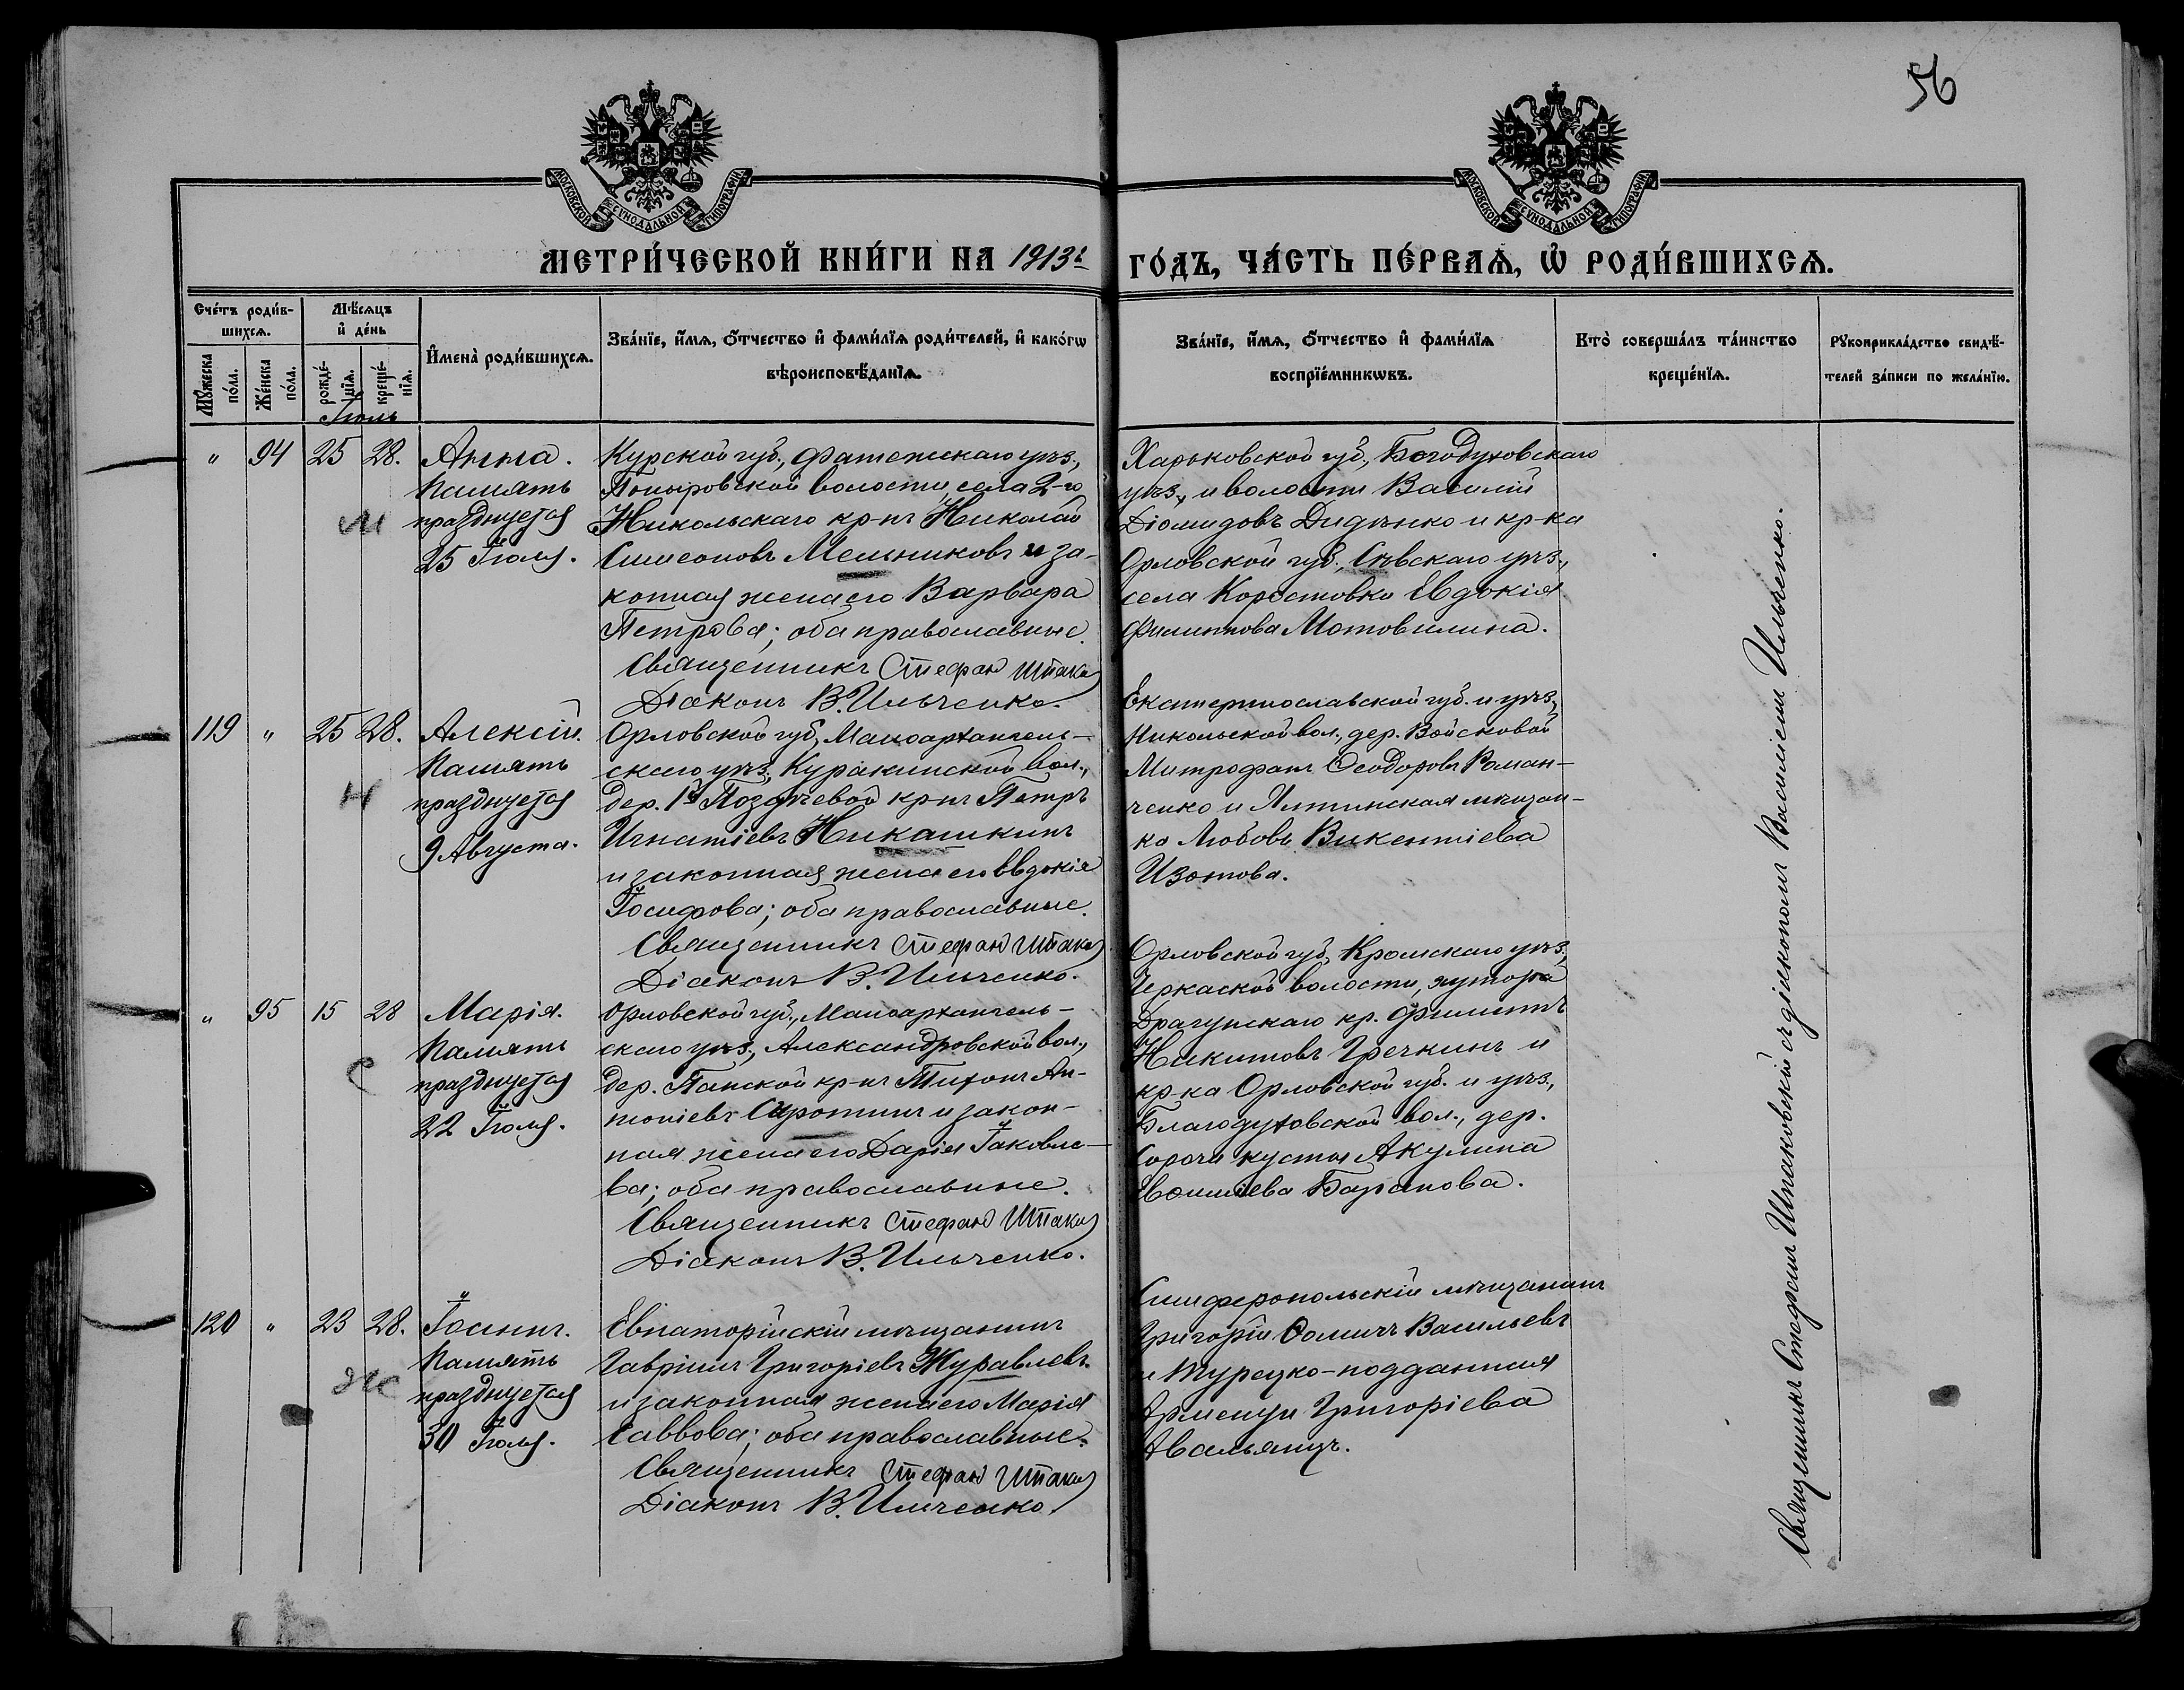 56
МОСКОВСКОЙ СѴНОДАЛЬНОЙ ТИПОГРАФІИ
МОСКОВСКОЙ СѴНОДАЛЬНОЙ ТИПОГРАФІИ
МЕТРИ́ЧЕСКОЙ КНИ́ГИ НА 1913й ГО́ДЪ, ЧА́СТЬ ПЕ́РВАѦ, Ѡ҆ РОДИ́ВШИХСѦ.
Сче́тъ роди́в-
шихсѧ.
Мѣ́сѧцъ
и҆ де́нь
Мꙋ́жеска
по́ла.
Же́нска
по́ла.
рожде́-
нїѧ.
креще́-
нїѧ.
И҆мена̀ роди́вшихсѧ.
Зва́нїе, и҆́мѧ, ѻ҆́тчество и҆ фами́лїѧ роди́телей, и҆ како́гѡ
вѣроисповѣ́данїѧ.
Зва́нїе, и҆́мѧ, ѻ҆́тчество и҆ фами́лїѧ
воспрїе́мникѡвъ.
Кто̀ соверша́лъ та́инство
креще́нїѧ.
Рꙋкоприкла́дство свидѣ́-
телей за́писи по жела́нїю.
Іюль
" 94 25 28. Анна.
Память
празднуется
25 Іюля.
М
Курской губ., Фатежскаго уѣз.,
Поныровской волости, села 2-го
Никольскаго кр-нъ Николай
Симеоновъ Мельниковъ и за-
конная жена его Варвара
Петрова; оба православные.
Священникъ Стефанъ Шпаков
Діаконъ В. Ильченко.
Харьковской губ., Богодуховскаго
уѣз., и волости Василій
Діомидовъ Дидѣнко и кр-ка
Орловской губ., Сѣвскаго уѣз.,
села Коростовки Евдокія
Филиппова Мотовилина.
119 " 25 28. Алексій.
Память
празднуется
9 Августа.
Н
Орловской губ., Малоархангель-
скаго уѣз., Куракинской вол.,
дер. 1й Позднѣевой кр-нъ Петръ
Игнатіевъ Никашкинъ
и законная жена его Евдокія
Іосифова; оба православные.
Священникъ Стефанъ Шпаков
Діаконъ В. Ильченко.
Екатеринославской губ. и уѣз.,
Никольской вол., дер. Войсковой
Митрофанъ Ѳеодоровъ Роман-
ченко и Ялтинская мѣщан-
ка Любовь Викентіева
Изотова.
" 95 15 28 Марія.
Память
празднуется
22 Іюля.
С
Орловской губ., Малоархангель-
скаго уѣз., Александровской вол.,
дер. Панской кр-нъ Тихонъ Ан-
тоніевъ Сиротинъ и закон-
ная жена его Дарія Іаковле-
ва; оба православные.
Священникъ Стефанъ Шпаков
Діаконъ В. Ильченко.
Орловской губ., Кромскаго уѣз.,
Черкаской волости, хутора
Драгунскаго кр. Филиппъ
Никитовъ Гречкинъ и
кр-ка Орловской губ. и уѣз.,
Благодуховской вол., дер.
Сорочи кусты Акулина
Баранова.
120 " 23 28. Іоаннъ.
Память
празднуется
30 Іюля.
Ж
Евпаторійскій мѣщанинъ
Гавріилъ Григоріевъ Журавлевъ
и законная жена его Марія
Саввова; оба православные.
Священникъ Стефанъ Шпаков
Діаконъ В. Ильченко.
Симферопольскій мѣщанинъ
Григорій Ѳомичъ Васильевъ
и Турецко-подданная
Арменуи Григоріева
Авальянцъ.
Священникъ Стефанъ Шпаковскій съ діакономъ Василіемъ Ильченко.